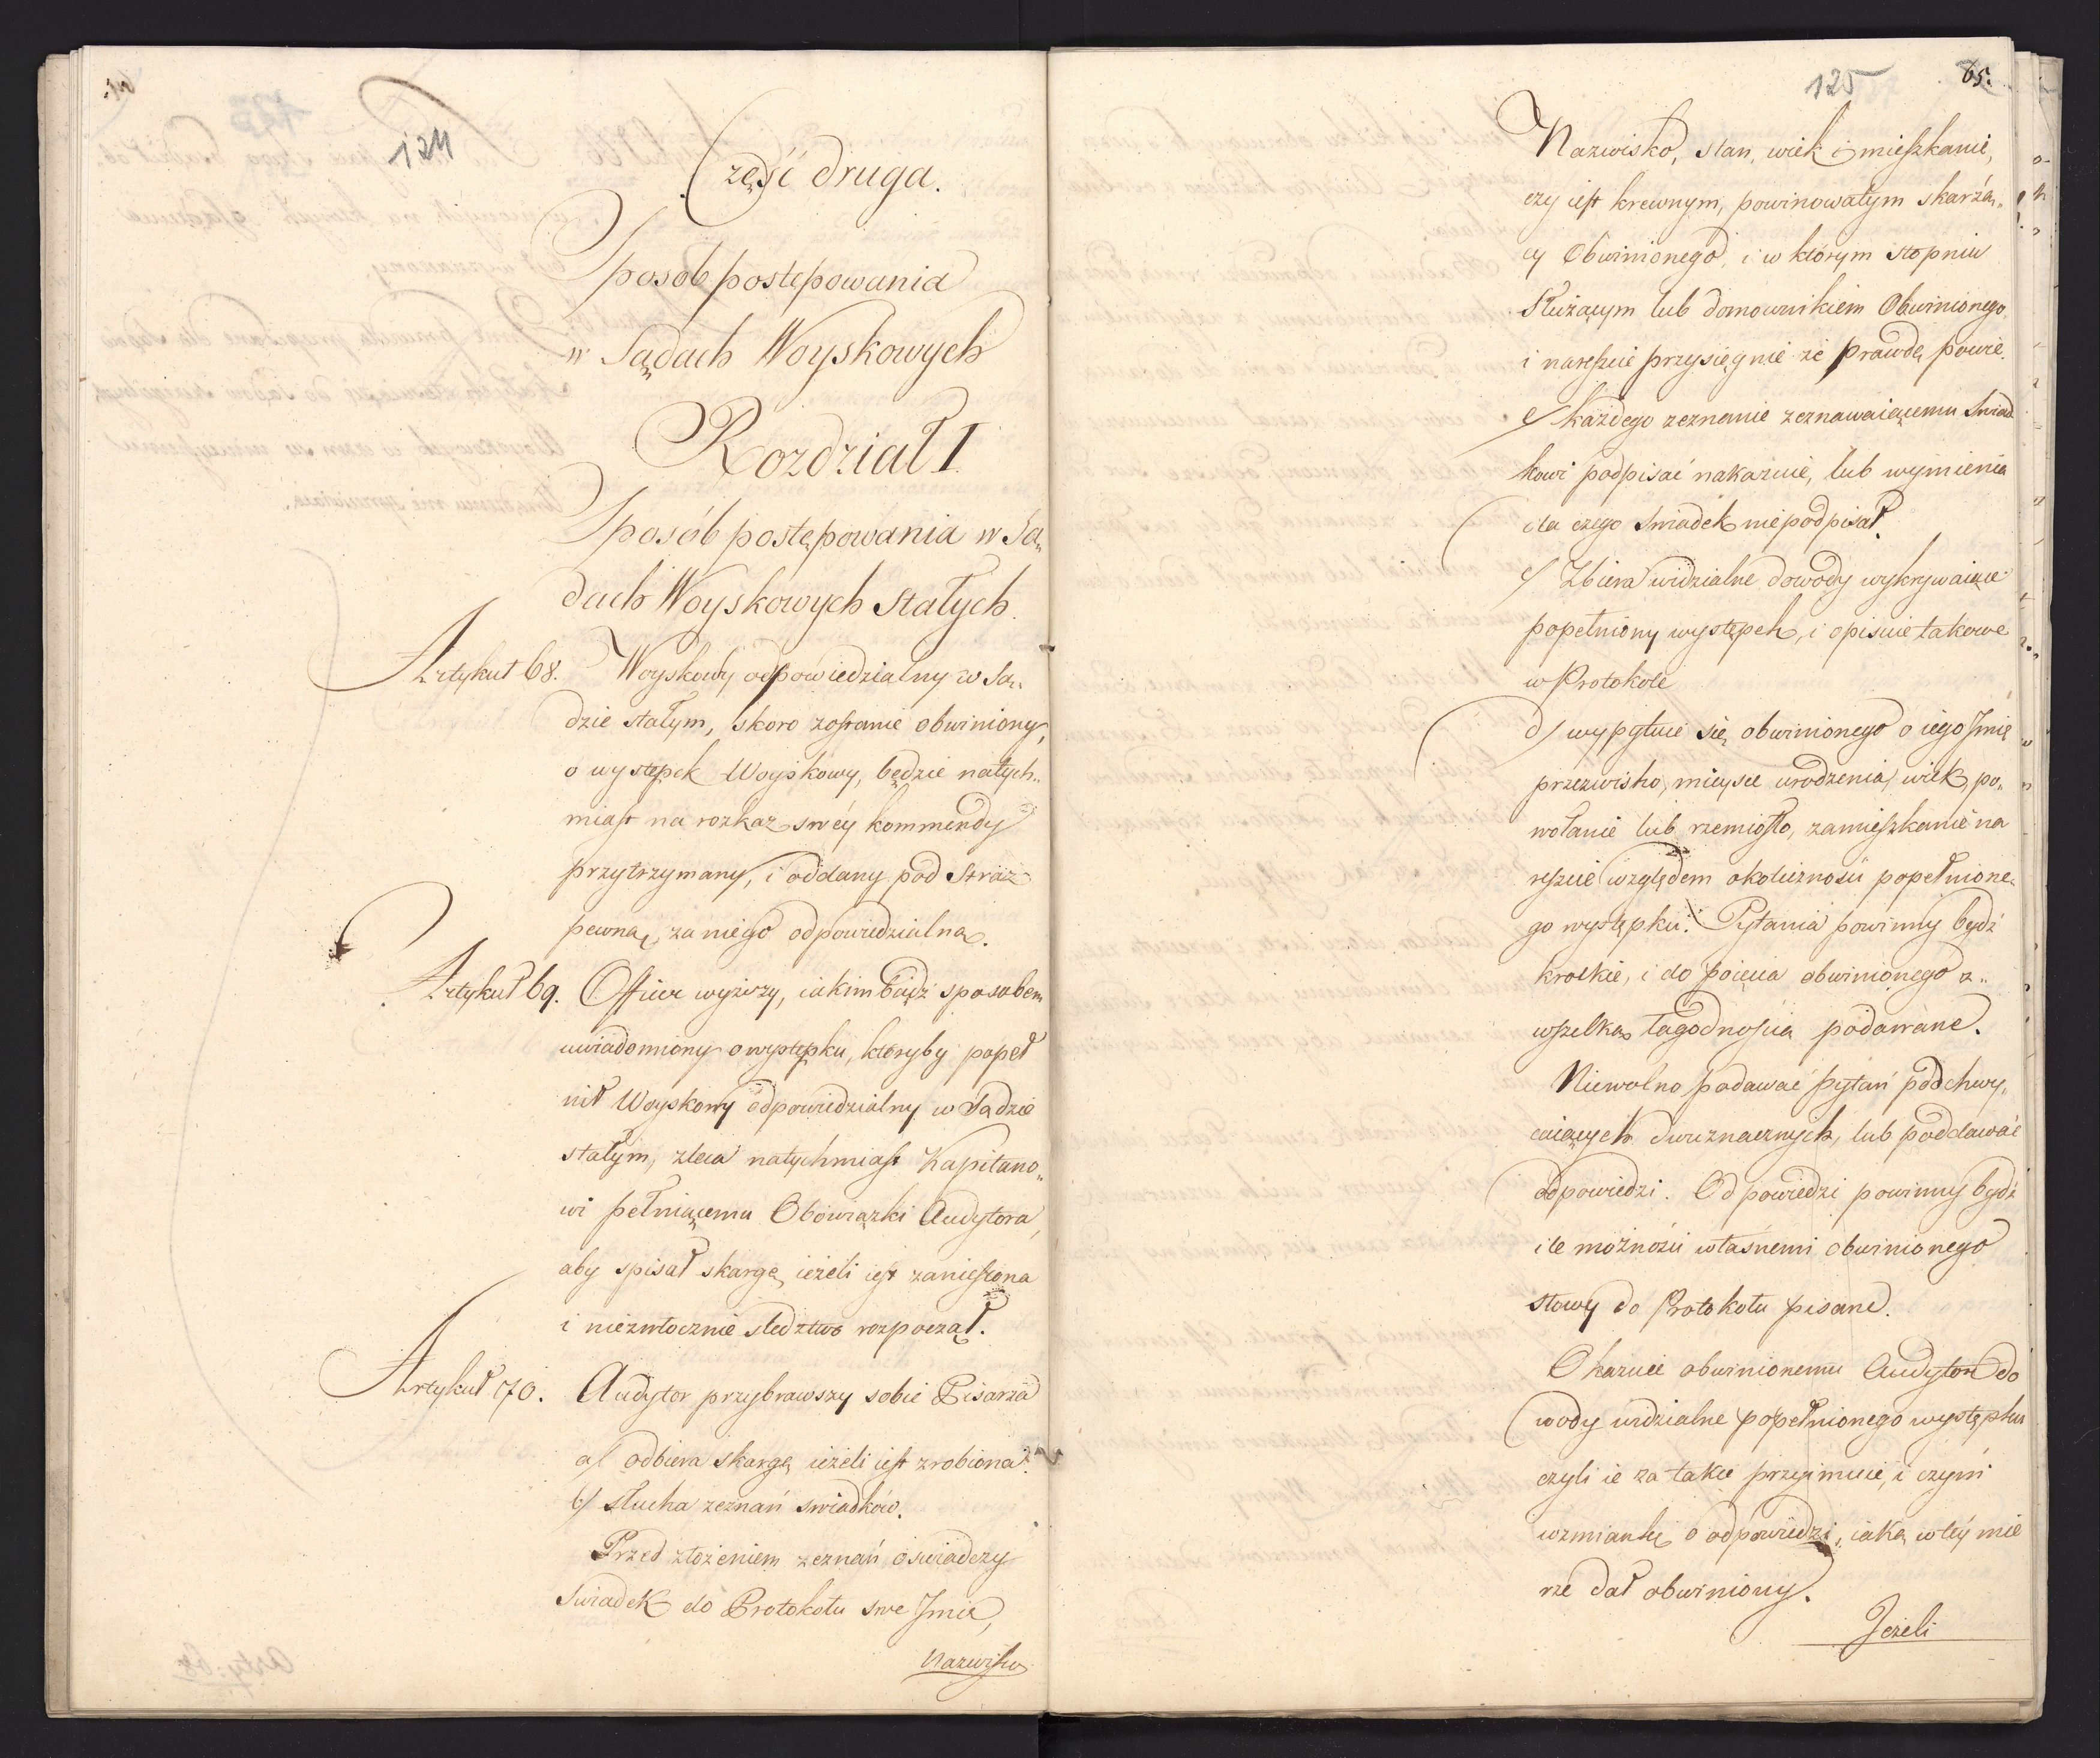 124
Część druga.
Sposob postępowania
w Sądach Woyskowych
Rozdział I.
Sposób postępowania w Są„
dach Woyskowych Stałych.
Artykuł 68. Woyskowy odpowiedzialny w Są„
dzie stałym, skoro zostanie obwiniony,
o występek Woyskowy, będzie natych„
miast na rozkaz swéy kommendy
przytrzymany, i oddany pod Straż
pewną, za niego odpowiedzialną.
Artykuł 69. Officer wyższy, iakim bądź sposobem
uwiadomiony o występku, któryby popeł
nił Woyskowy odpowiedzialny w Sądzie
stałym, zleca natychmiast Kapitano„
wi pełniącemu Obowiązki Audytora,
aby spisał skargę, ieżeli iest zaniesiona
i niezwłocznie sledztwo rozpoczął.
Artykuł 70. Audytor przybrawszy sobie Pisarza
a/ odbiera skargę, ieżeli iest zrobiona.
b/ słucha zeznań swiadków.
Przed złożeniem zeznań oswiadczy
Swiadek do Protokołu swe Jmie,
Nazwisko
125 65.
Nazwisko, stan, wiek i mieszkanie,
czy iest krewnym, powinowatym skarżą„
cy Obwinionego, i w którym stopniu
Służącym lub domownikiem Obwinionego
i nareszcie przysięgnie że prawdę powie.
c/ każdego zeznanie zeznawaiącemu Swiad
kowi podpisać nakazuie, lub wymienia
dla czego Swiadek nie podpisał.
c/ Zbiera widzialne dowody wykrywaiące
popełniony występek, i opisuie takowe
w Protokole
d/ wypytuie się obwinionego o iego Jmię
przezwisko, mieysce urodzenia, wiek, po„
wołanie lub rzemiosło, zamieszkanie na
reszcie względem okoliczności popełnione„
go występku. Pytania powinny bydź
krotkie, i do poięcia obwinionego z„
wszelką łagodnością podawane.
Niewolno podawać pytań podchwy„
cuiących dwuznacznych, lub poddawać
odpowiedzi. Odpowiedzi powinny bydź
ile możności własnemi obwinionego
słowy do Protokołu pisane.
Okazuie obwinionemu Audytor do
wody widzialne popełnionego występku
czyli ie za takie przyimuie, i czyni
wzmiankę o odpowiedzi, iaką w téy mie
rze dał obwiniony.
Jeżeli